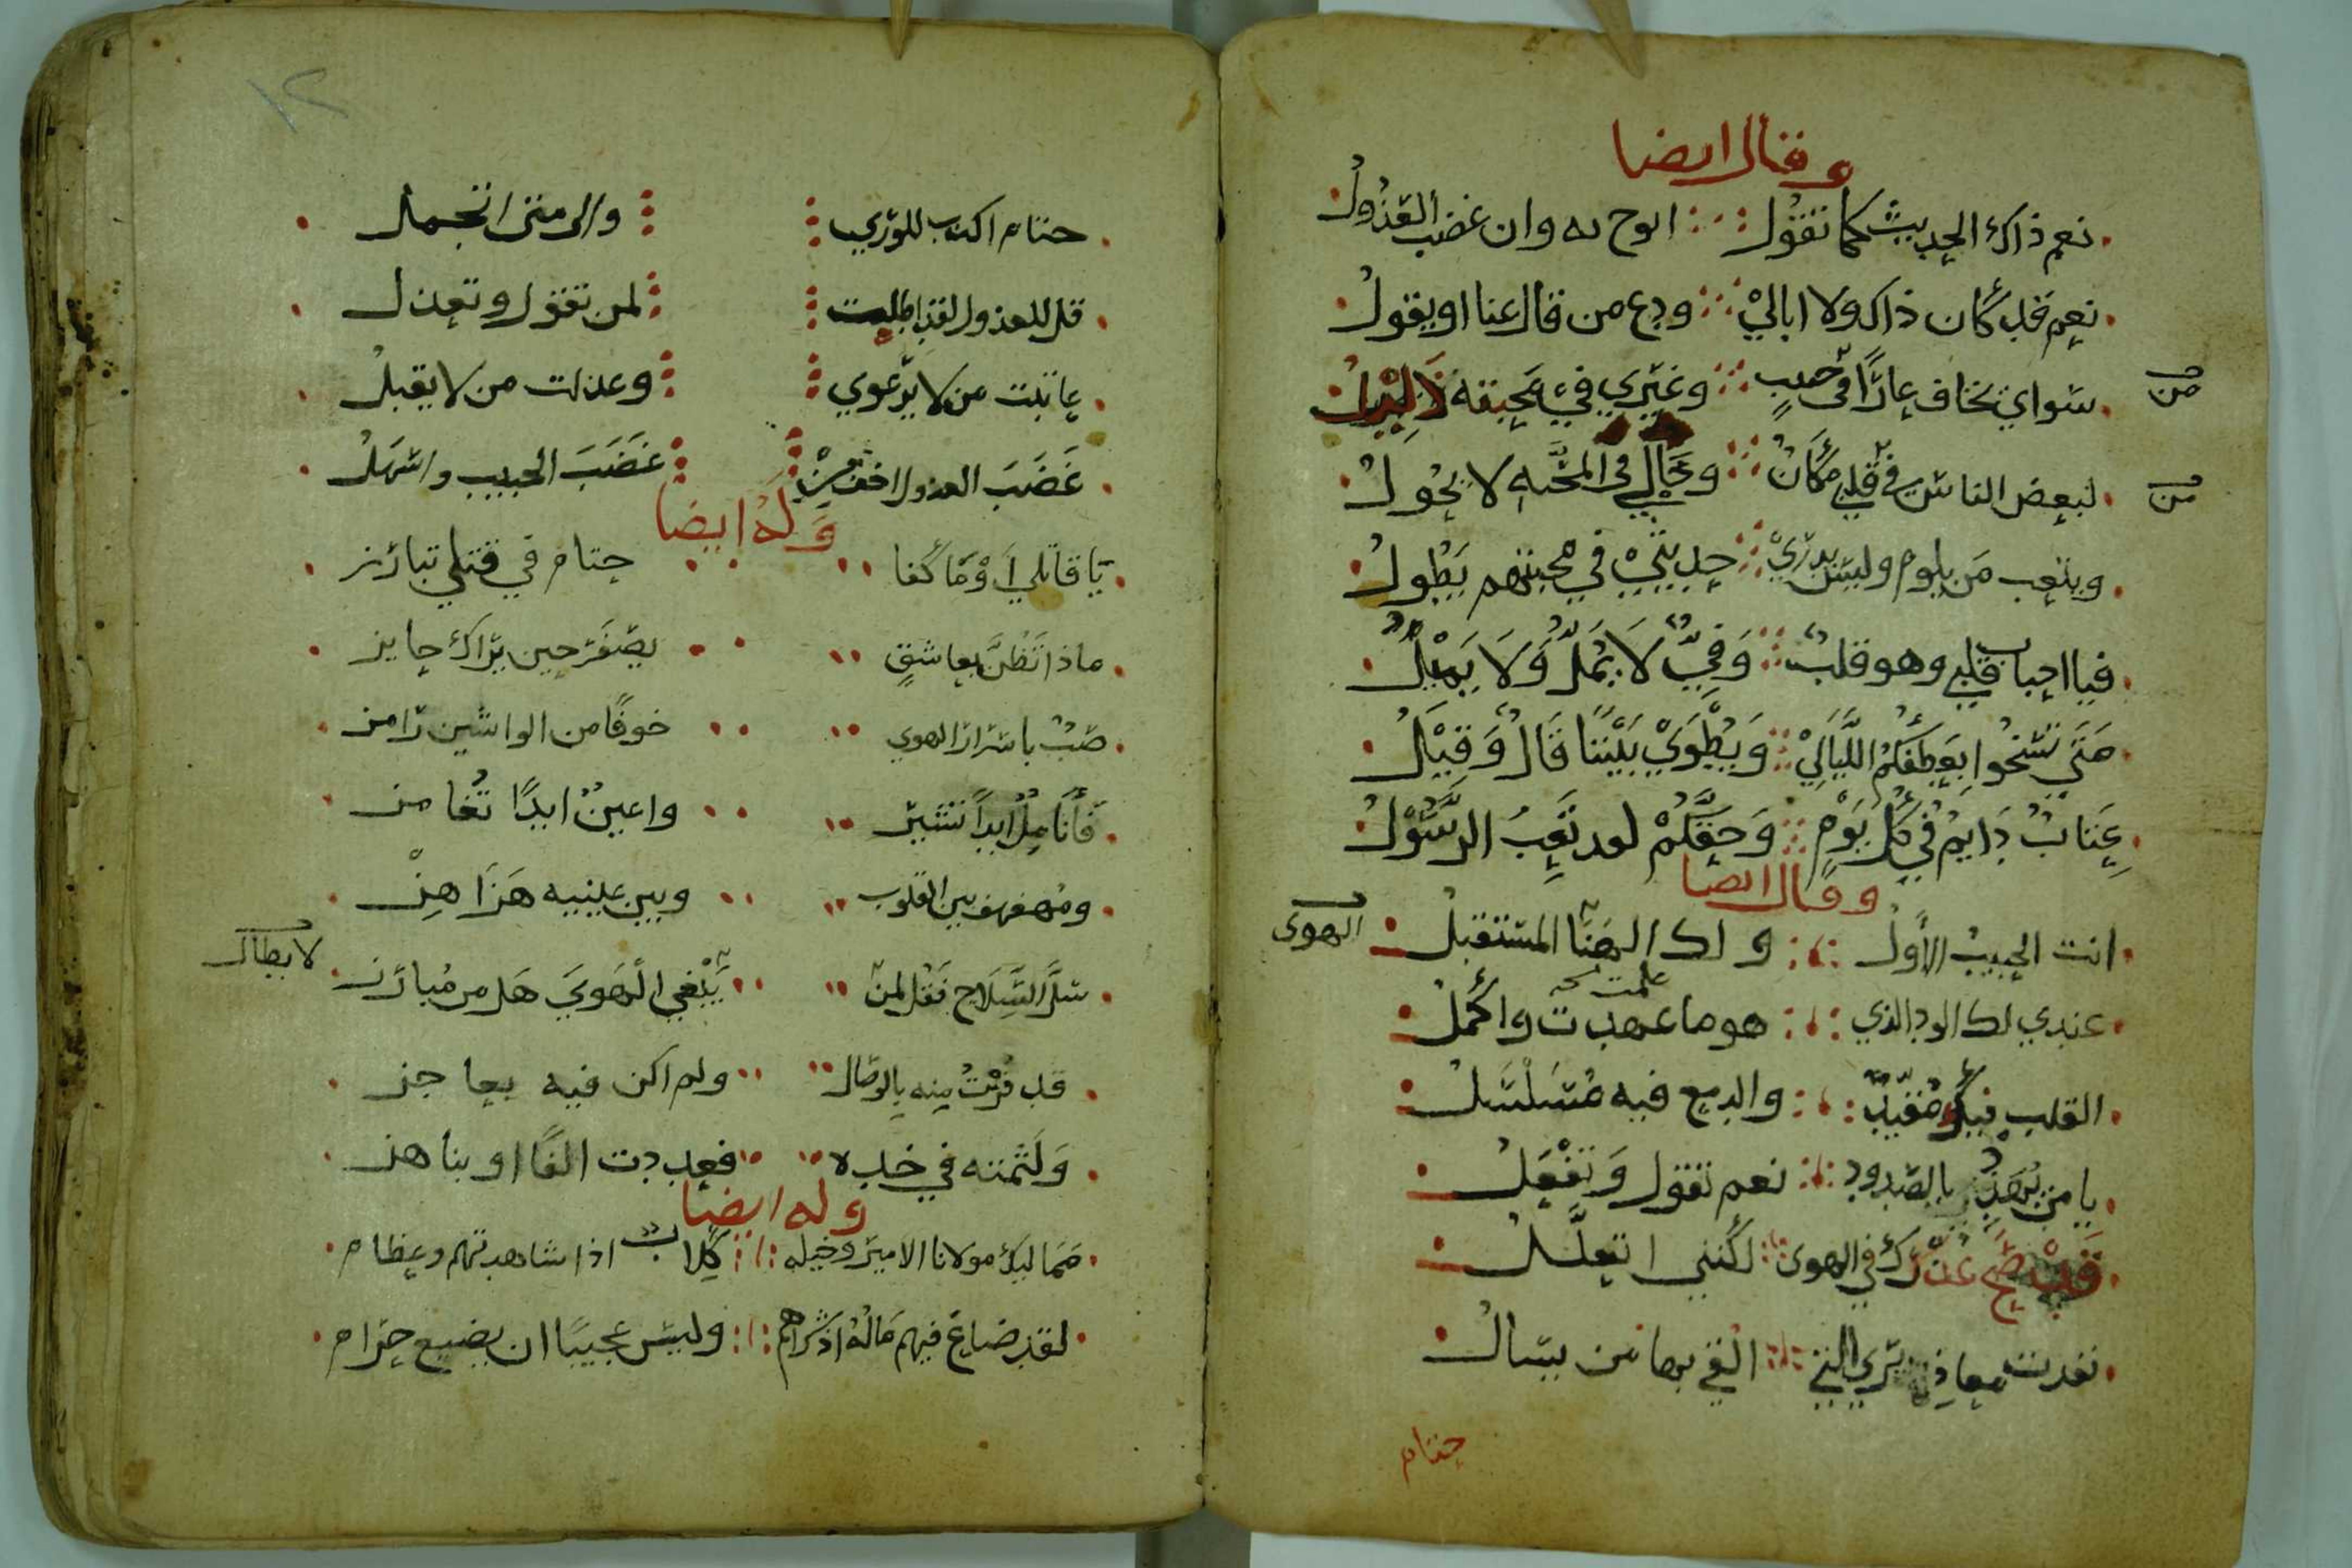 وقال ايضا
نعم ذاك الحديث كما تقول ابوح به وان غضب العذول
نعم قد كان ذاك ولا ابالي ودع من قال عنا او يقول
من
سواي يخاف عارًا في حبيبٍ وغيري في محبته ذليل
من
لبعض الناس في قلبي مكان وحالي في المحبه لا يحول
ويتعب من يلوم وليس يدري حديثي في محبتهم يطول
فيا احباب قلبي وهو قلب وفيّ لا يمل ولا يميل
متى تسخوا بعطفكم الليالي ويطوي بيننا قال وقيل
عتاب دايم في كل يوم وحقكم لقد تعب الرسول
وقال ايضا
انت الحبيب الأول ولك الهنا المستقبل
الهوى
علمت
عندي لك الود الذي هو ما عهدت واكمل
القلب فيك مقيد والدمع فيه مسلسل
يا من يهدد بالصدود نعم تقول وتفعل
قد صح عذرك في الهوى لكنني اتعلل
نفدت معاذيري التي القي بها من يسال
حتام
١٢
حتام اكذب للوري والى متى اتجمل
قل للعذول لقد اطلت لمن تقول وتعذل
عاتبت من لا يرعوي وعذلت من لا يقبل
غَضَبَ العذول اخف من غَضَبَ الحبيب واسهل
وله ايضا
يا قاتلي أوما كفا حتام في قتلي تبارز
ماذا تظن بعاشقٍ يصفر حين يراك جايز
صب باسرار الهوى خوفًا من الواشين رامز
فأنامل ابداً تشير واعين ابدًا تغامز
ومهفهف بين القلوب وبين عينيه هزاهز
سل السلاح فقل لمن يبغي الهوي هل من مبارز
لا بطال
قد فزت منه بالوصال ولم اكن فيه بعاجز
ولثمته في خده فعددت الفًا او بناهز
وله ايضا
مماليك مولانا الامير وخيله كلاب اذا شاهدتهم وعظام
لقد ضاع فيهم ماله اذ شراهم وليس عجيبًا ان يضيع حرام